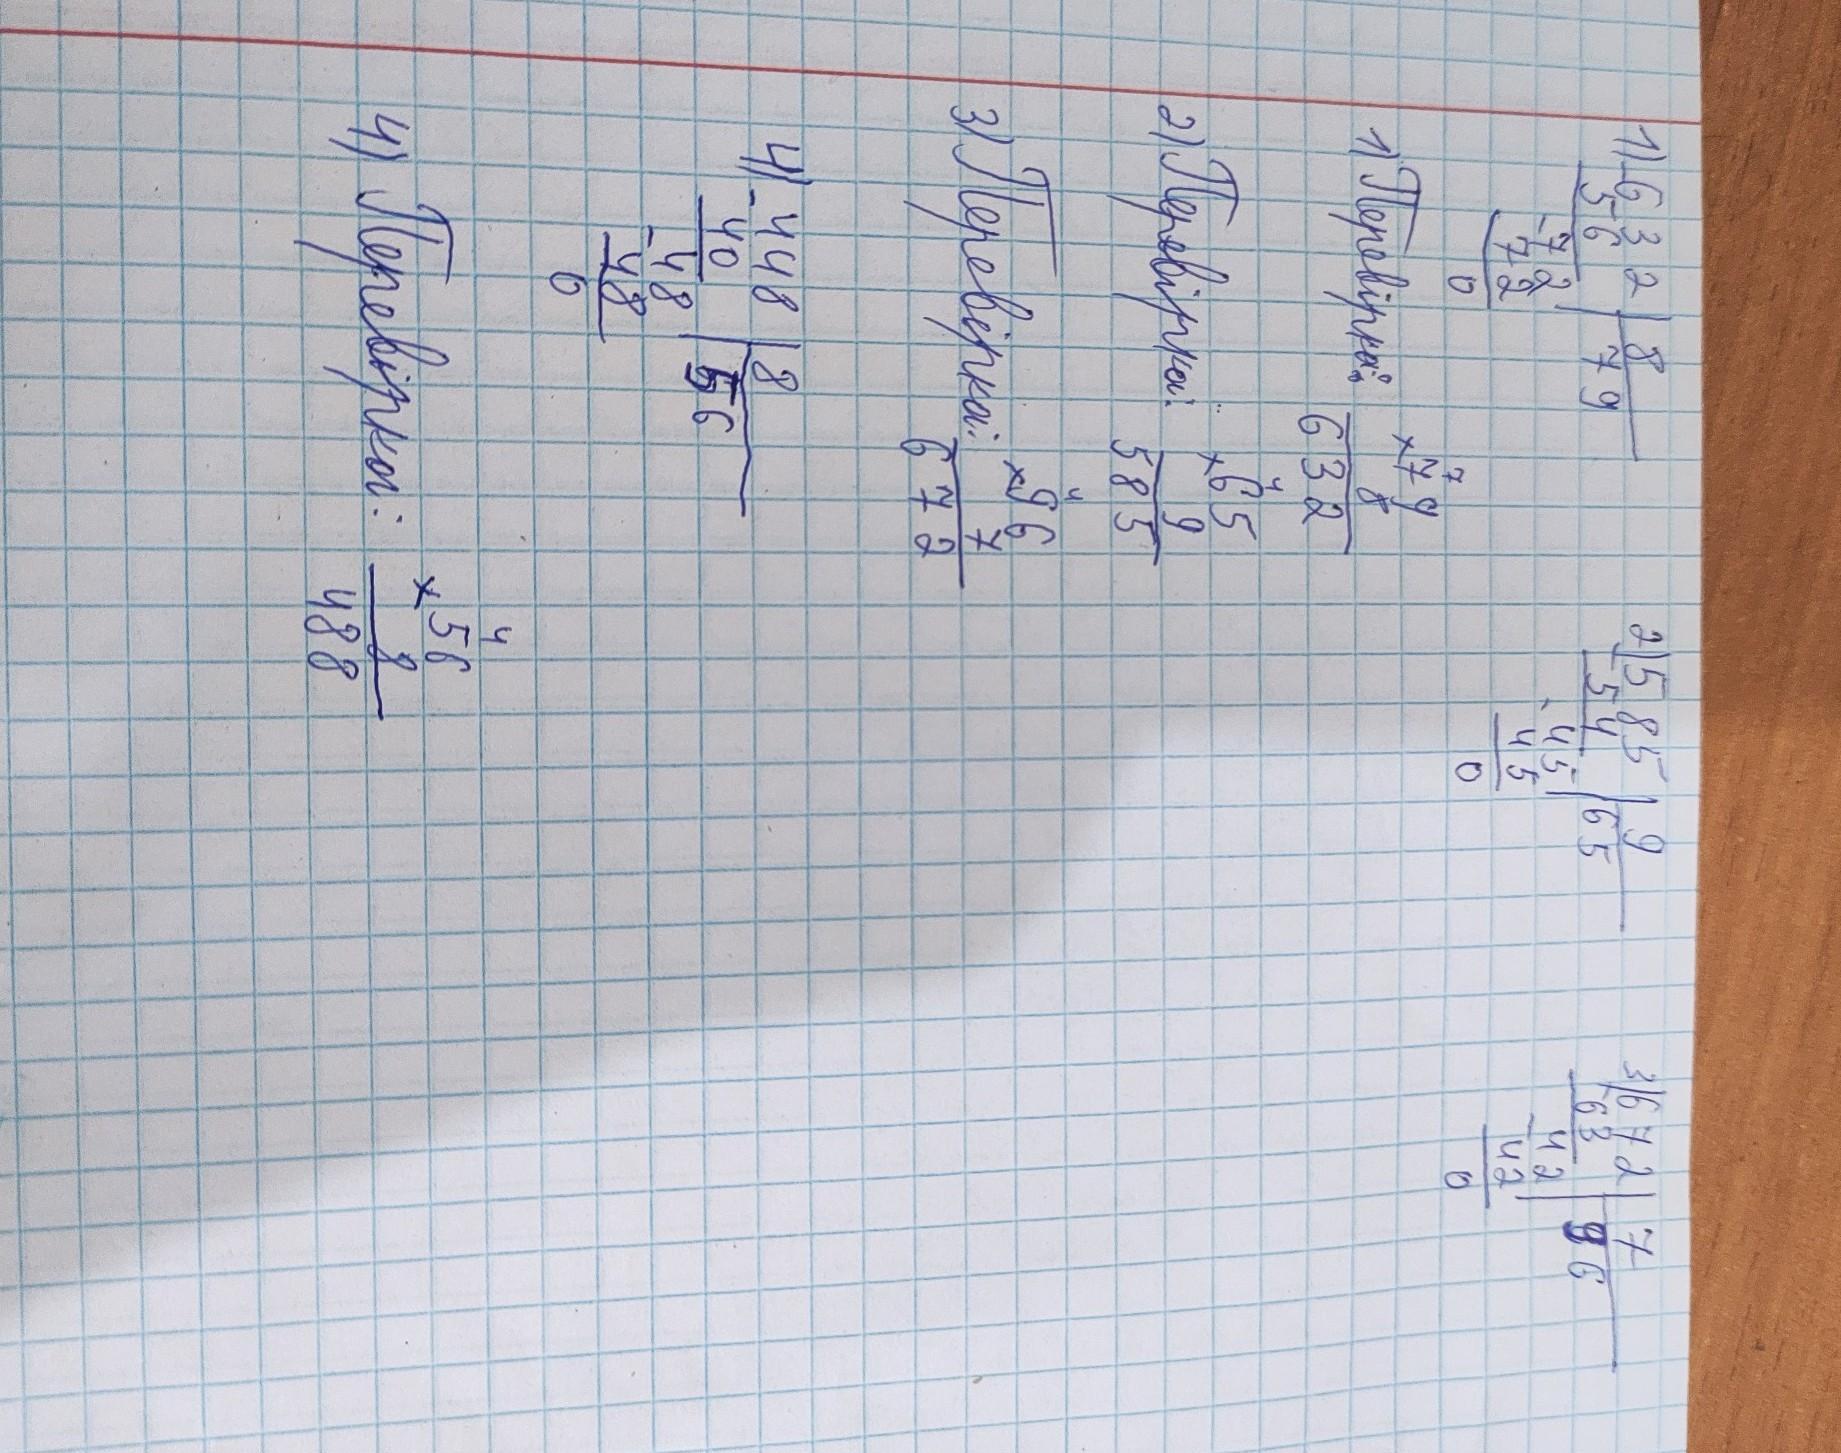 1) 632 | 8 2) 585 | 9 3) 672 | 7
56 | 79 54 | 65 63 | 96
-72 -45 -42
72 45 42
0 0 0
1) Перевірка: ×79
7
8
632
2) Перевірка: ×65
4
9
585
3) Перевірка: ×96
4
7
672
4) -448 | 8
40 | 56
-48
48
0
4) Перевірка: ×56
4
8
488